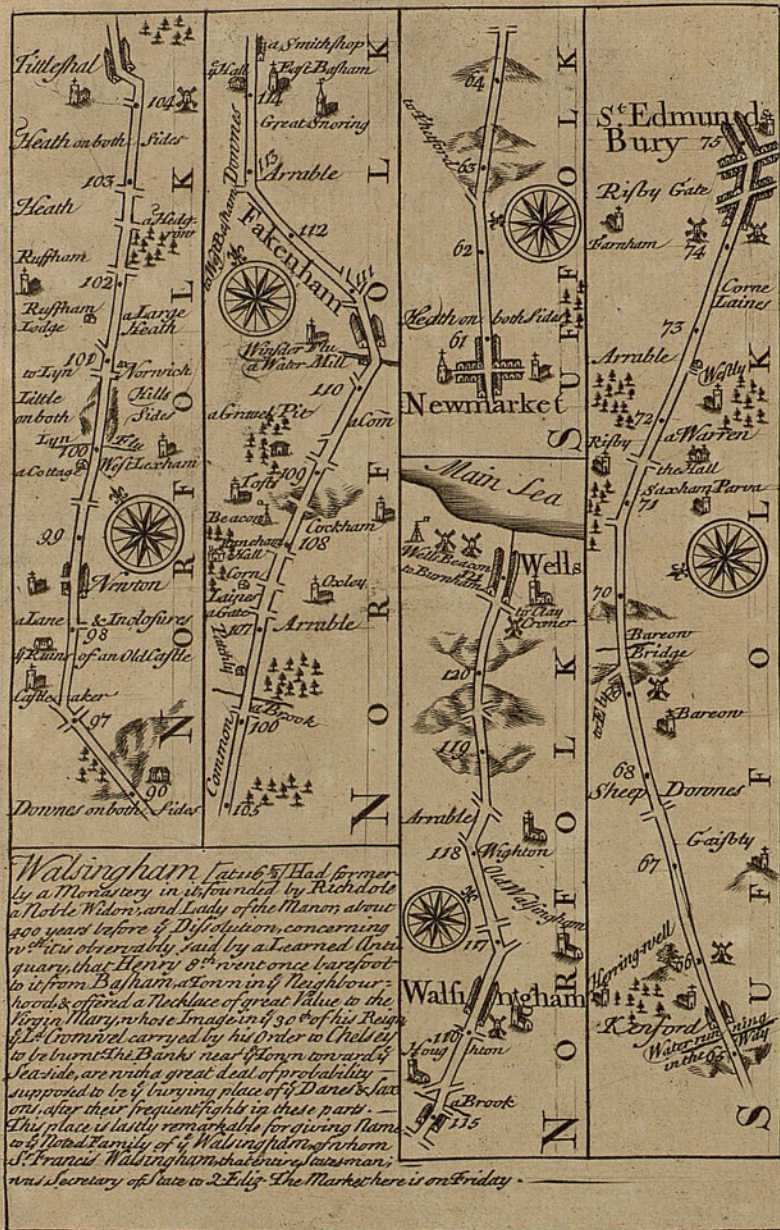 Tittleshal
104
Heath on both Sides
103
Heath
a Hedg
row
Ruffham
102
Ruffham
Lodge
a Large
Heath
101
to Lyn
Norwich
Little
on both
Hills
Sides
Lyn
100
a Cottage
West Lexham
99
Newton
a Lane & Inclosures
98
ẙ Ruins of an Old Castle
Castleaker
97
96
Downes on both Sides
NORFOLK
a Smithshop
ẙ Hall
East Basham
114
Great Snoring
Downes
113
Arrable
112
Fakenham
111
a Water Mill
110
a Gravel Pit
a Com̄
109
Tofts
Beacon
Cockham
Hall
108
Corn
Laines
a Gate
Oxley
107
Arrable
a Brook
106
Common
105
NORFOLK
64
to Thetford
63
62
Heath on both Sides
61
Newmarket
SUFFOLK
Main Sea
Well Beacon
to Burnham
Wells
to Clay
Cromer
120
119
Arrable
118
Wighton
Old Walsingham
117
Walsingham
116
Houghton
a Brook
115
NORFOLK
Sᵗ Edmunds
Bury
75
Risby Gate
Farnham
74
Corne
Laines
73
Arrable
Westly
72
a Warren
Risby
the Hall
Saxham Parva
71
70
Bareow
Bridge
to Ely
Bareow
68
Sheep Downes
67
Gaisbty
66
Herringwell
Kenford
Water running
in the Way
65
SUFFOLK
Walsingham [at 116½] Had former-
ly a Monastery in it, founded by Richdole
a Noble Widow, and Lady of the Manor, about
400 years before ẙ Dissolution, concerning
wᶜʰ it is observably said by a Learned Anti
quary, that Henry 8ᵗʰ went once barefoot
to it from Basham, a Town in ẙ Neighbour-
hood, & offered a Necklace of great Value to the
Virgin Mary, whose Image in ẙ 30ᵗʰ of his Reign
ẙ Lᵈ Cromwel carryed by his Order to Chelsey
to be burnt. The Banks near ẙ Town toward ẙ
Sea-side, are with a great deal of probability
supposed to be ẙ burying place of ẙ Danes & Sax
ons, after their frequent fights in these parts. —
This place is lastly remarkable for giving Name
to ẙ Noted Family of ẙ Walsingham, of whom
Sʳ Francis Walsingham, that entire Statesman,
was Secretary of State to Q. Eliz. The Market here is on Friday.